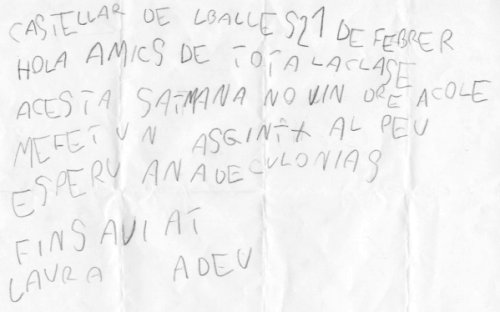 CASTELLAR DE LBALLES 21 DE FEBRER
HOLA AMICS DE TOTA LACLASE
ACESTA SATMANA NO VIN DRE ACOLE
MEFET UN ASGINTX AL PEU
ESPERU ANADECULONIAS
FINS AVIAT
LAURA ADEU